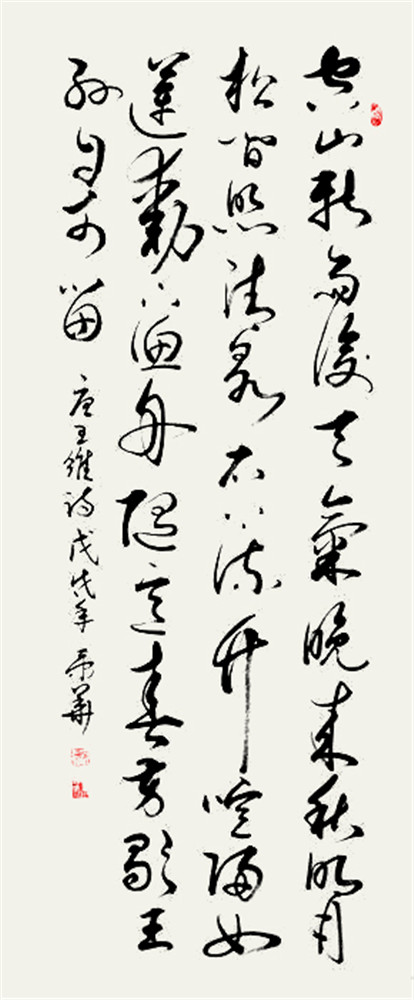 空山新雨後天氣晚來秋明月
松間照清泉石上流竹喧歸女
蓮動下漁舟隨意春芳歇王
孫自可留
唐王維詩戊戌年華